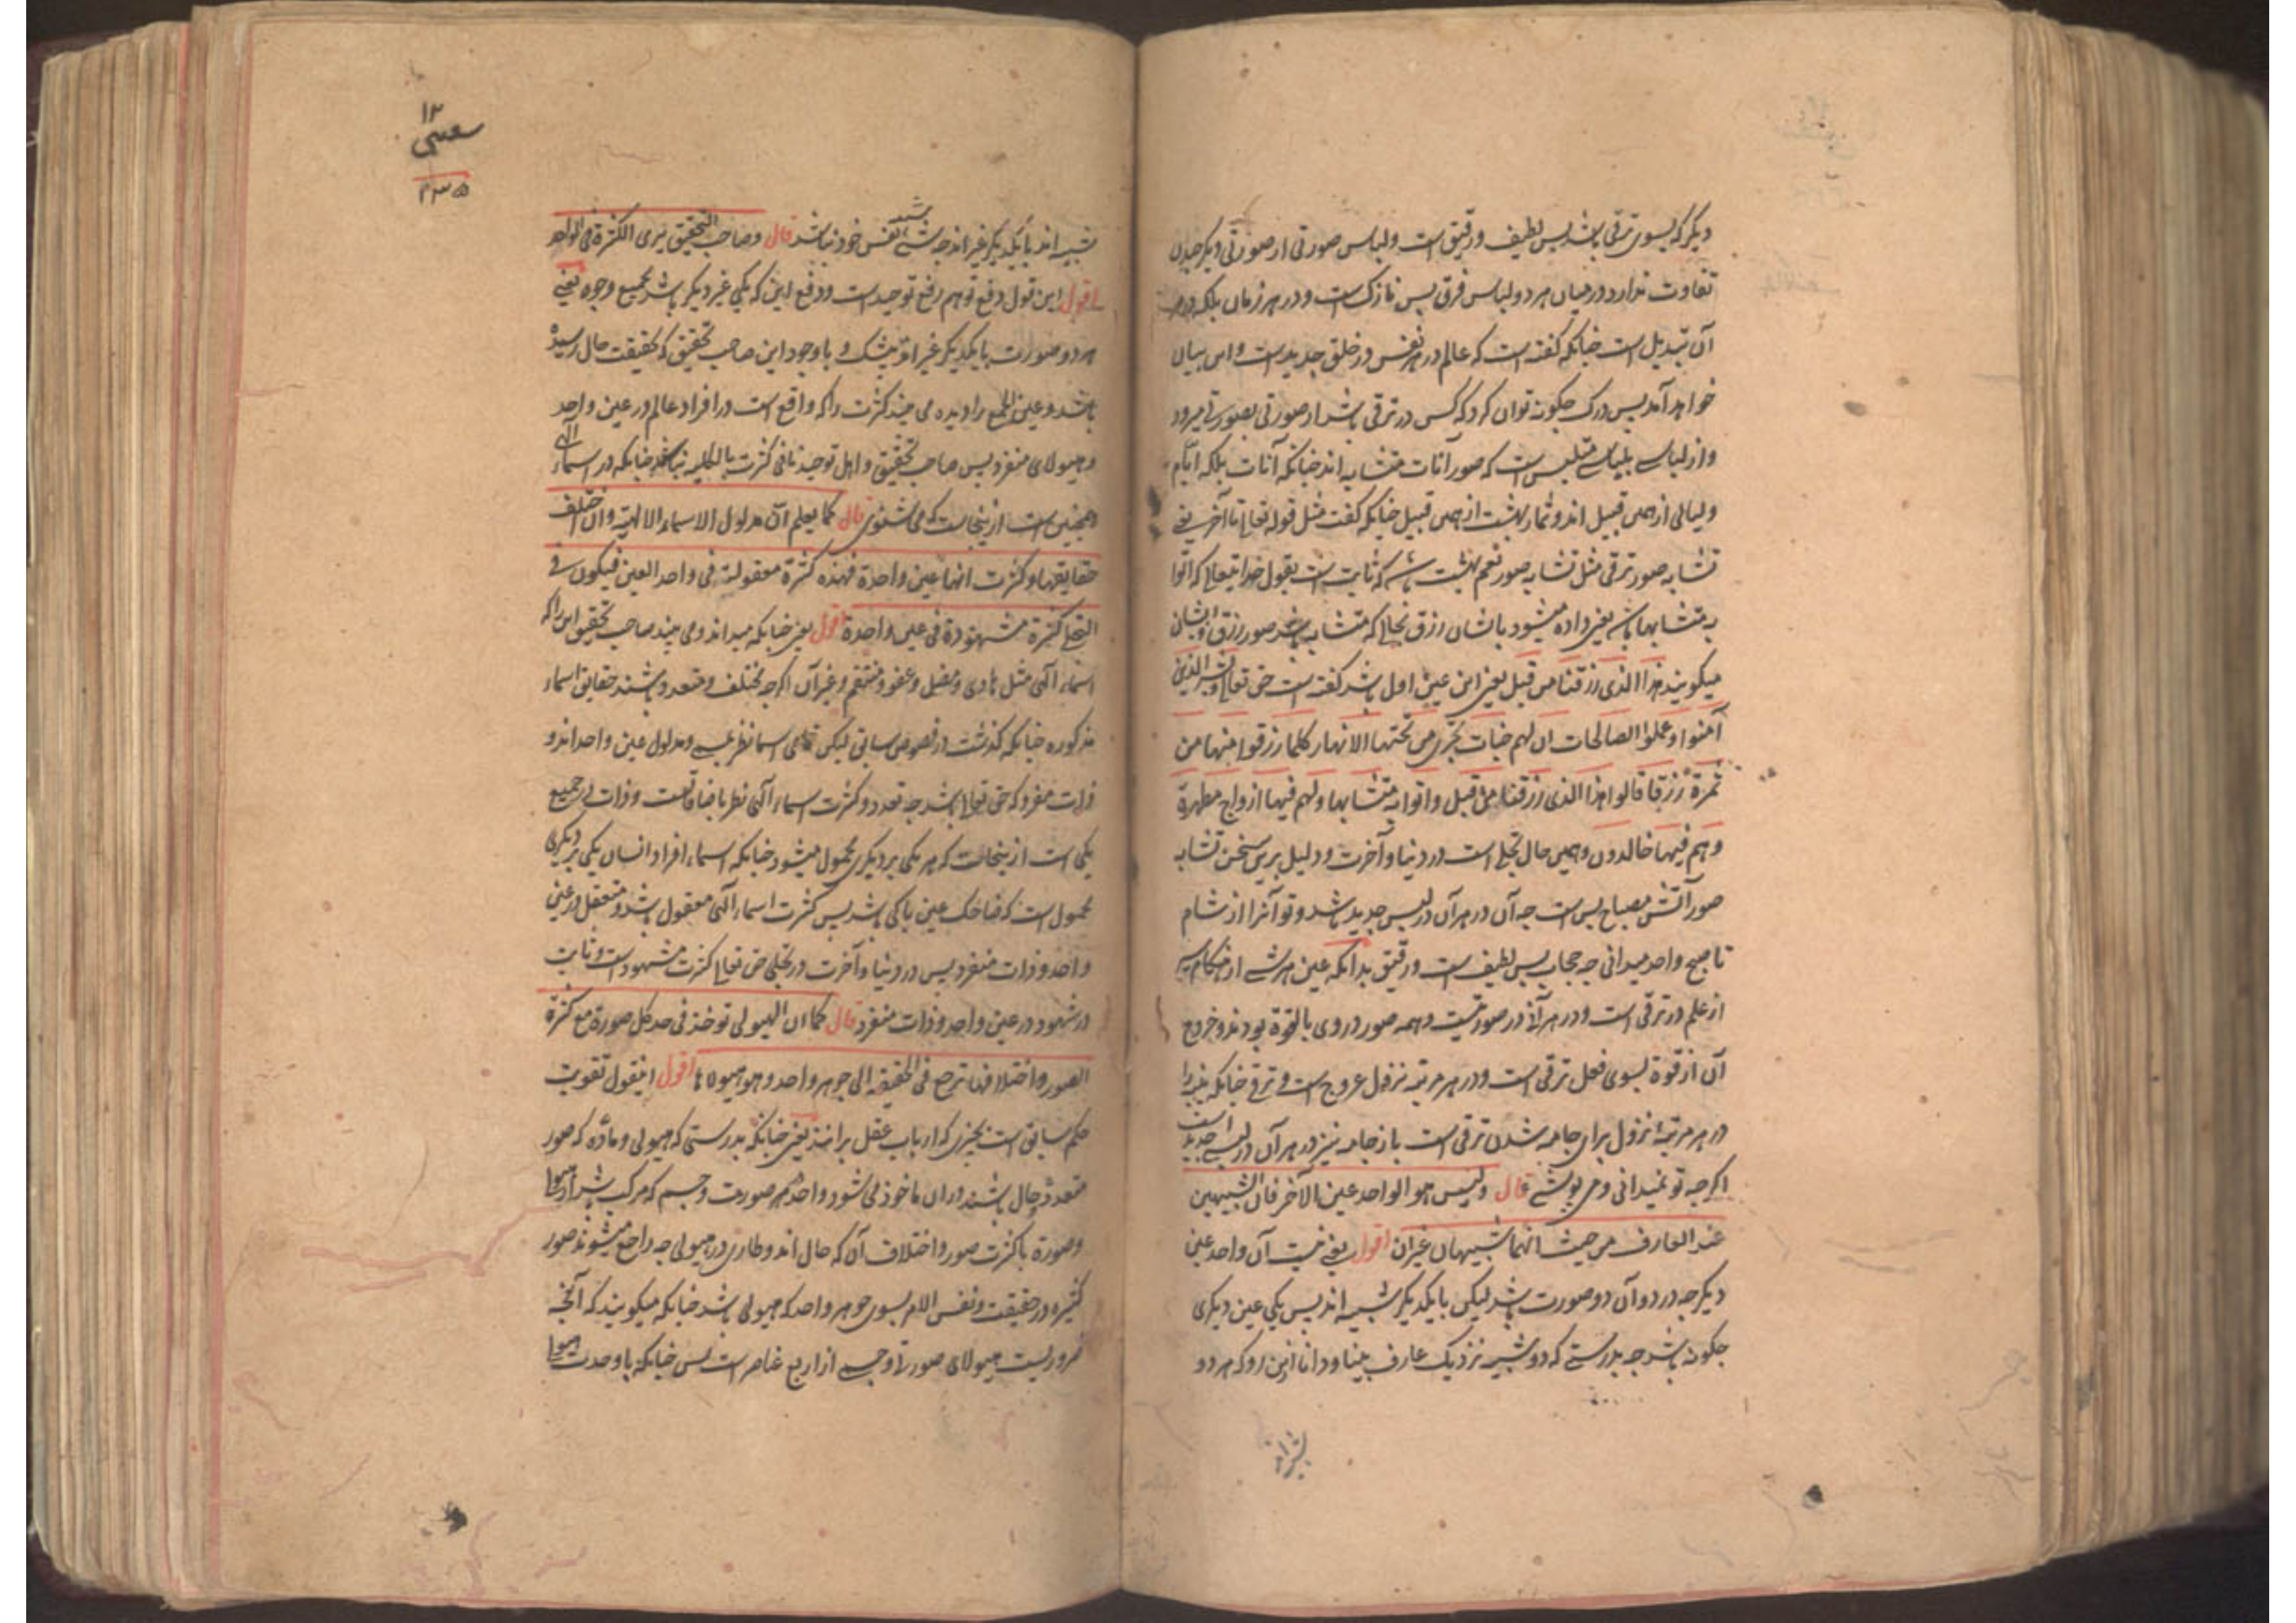 دیگر که بسوی ترقی باشد پس لطیف و رقیق است ولباس صورتی از صورتی دیگر چندان
تفاوت ندارد و درمیان هر دو لباس فرق بس نازک است و در هر زمان بلکه در هر
آن تبدیل است چنانکه گفته است که عالم در هر نفس در خلق جدید است و این بیان
خواهد آمد پس درک چگونه توان کرد که کس در ترقی باشد از صورتی بصورتے میرود
و از لباسے بلباسے متلبس است که صور آنات متشابه اند چنانکه آنات بلکه ایّام
ولیالی از همین قبیل اند و ثمار بهشت از همین قبیل چنانکه گفت مثل قوله تعالے تا آخر یعنے
تشابه صور ترقی مثل تشابه صور نعم بهشت باشد که ثابت است بقول خدایتعالے که اتوا
به متشابها باشد یعنی داده میشود بایشان رزق بحالے که متشابه باشد صور رزق و ایشان
میگویند هذا الذی رزقنا من قبل یعنی این عین اول باشد گفته است حق تعالے و بشر الذین
آمنوا وعملوا الصالحات ان لهم جنات تجری من تحتها الانهار کلما رزقوا منها من
ثمرة رزقا قالوا هذا الذی رزقنا من قبل واتوا به متشابها ولهم فیها ازواج مطهرة
وهم فیها خالدون وهمین حال تجلے است در دنیا و آخرت و دلیل برین سخن تشابه
صور آتش مصباح بس است چه آن در هر آن در لبس جدید باشد و تو آنرا از شام
تا صبح واحد میدانی چه حجاب بس لطیف است و رقیق بدانکه عین هر شے از هنگام
از علم در ترقی است و در هر آنے در صورتیست و همه صور در وی بالقوة بودند و خروج
آن از قوة بسوی فعل ترقی است و در هر مرتبه نزول عروج است و ترقے چنانکه پنبه را
در هر مرتبهٔ نزول برای جامه شدن ترقی است باز جامه نیز در هر آن در لبسے جدید است
اگرچه تو نمیدانی و می پوشے قال ولیس هو الواحد عین الآخر فان الشبیهین
عند العارف من حیث انهما شبیهان غیران اقول یعنے نیست آن واحد عین
دیگر چه در دو آن دو صورت باشد لیکن بایکدیگر شبیه اند پس یکی عین دیگری
چگونه باشد چه بدرستے که دو شبیه نزدیک عارف بینا و دانا ازین رو که هر دو
۱۲
۲۳۵
شبیه اند بایکدیگر غیر اند چه شے شبیه نفس خود نباشد قال وصاحب التحقیق یری الکثرة فی الواحد
اقول این قول دفع توهم رفع توحید است و دفع این که یکی غیر دیگر باشد بجمیع وجوه یعنے
هر دو صورت بایکدیگر غیر اند بیشک و باوجود این صاحب تحقیق که بحقیقت حال رسیده
باشد و عین الجمع را دیده می بیند کثرت را که واقع است در افراد عالم در عین واحد
و هیولای منفرد پس صاحب تحقیق و اهل توحید نافی کثرت بالکلیه نباشد چنانکه در اسماء الٰهے
همچنین است ازینجاست که می شنوی قال کما یعلم انّ مدلول الاسماء الالهیة وان اختلفت
حقایقها وکثرت انها عین واحدة فهذه کثرة معقولة فی واحد العین فیکون فی
التجلے کثرة مشهودة فی عین واحدة اقول یعنی چنانکه میداند و می بیند صاحب تحقیق این را که
اسماء آلهی مثل هادی و مضل و عفو و منتقم و غیر آن اگرچه مختلف و متعدد باشند حقایق اسماء
مذکوره چنانکه گذشت در نصوص سابق لیکن تمامی اسما نظر بمسمے و مدلول عین واحد اند و
ذات مفرد که حق تعالے باشد چه تعدد و کثرت اسماء آلهی نظر باضافاتست و ذات در جمیع
یکی است ازینجاست که هر یکی بر دیگری محمول میشود چنانکه اسماء افراد انسان یکی بر دیگری
محمول است که ضاحک عین باکی باشد پس کثرت اسماء آلهی معقول باشد و متعقل در عین
واحد و ذات منفرد پس در دنیا و آخرت در تجلی حق تعالے کثرت مشهود است و ثابت
در شهود در عین واحد و ذات منفرد قال کما ان الهیولی توخذ فی حد کل صورة مع کثرة
الصور واختلافها ترجع فی الحقیقه الی جوهر واحد وهو هیولاها اقول اینقول تقویت
حکم سابق است بچیزی که ارباب عقل برانند یعنی چنانکه بدرستی که هیولی و مادّه که صور
متعدد حال باشند در ان ماخوذ می شود در حد هر صورت و جسم که مرکب باشد از هیولا
و صورة با کثرت صور و اختلاف آن که حال اند و طاری در هیولی چه راجع میشوند صور
کثیره در حقیقت و نفس الامر بسوی جوهر واحد که هیولی باشد چنانکه میگویند که آنچه
ضروریست هیولای صورتے و جسمے از اربع عناصر است پس چنانکه با وحدت هیولا